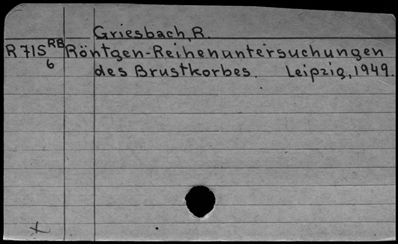 Griesbach, R.
R 715 RB Röntgen-Reihenuntersuchungen
6 des Brustkorbes. Leipzig, 1949.
x